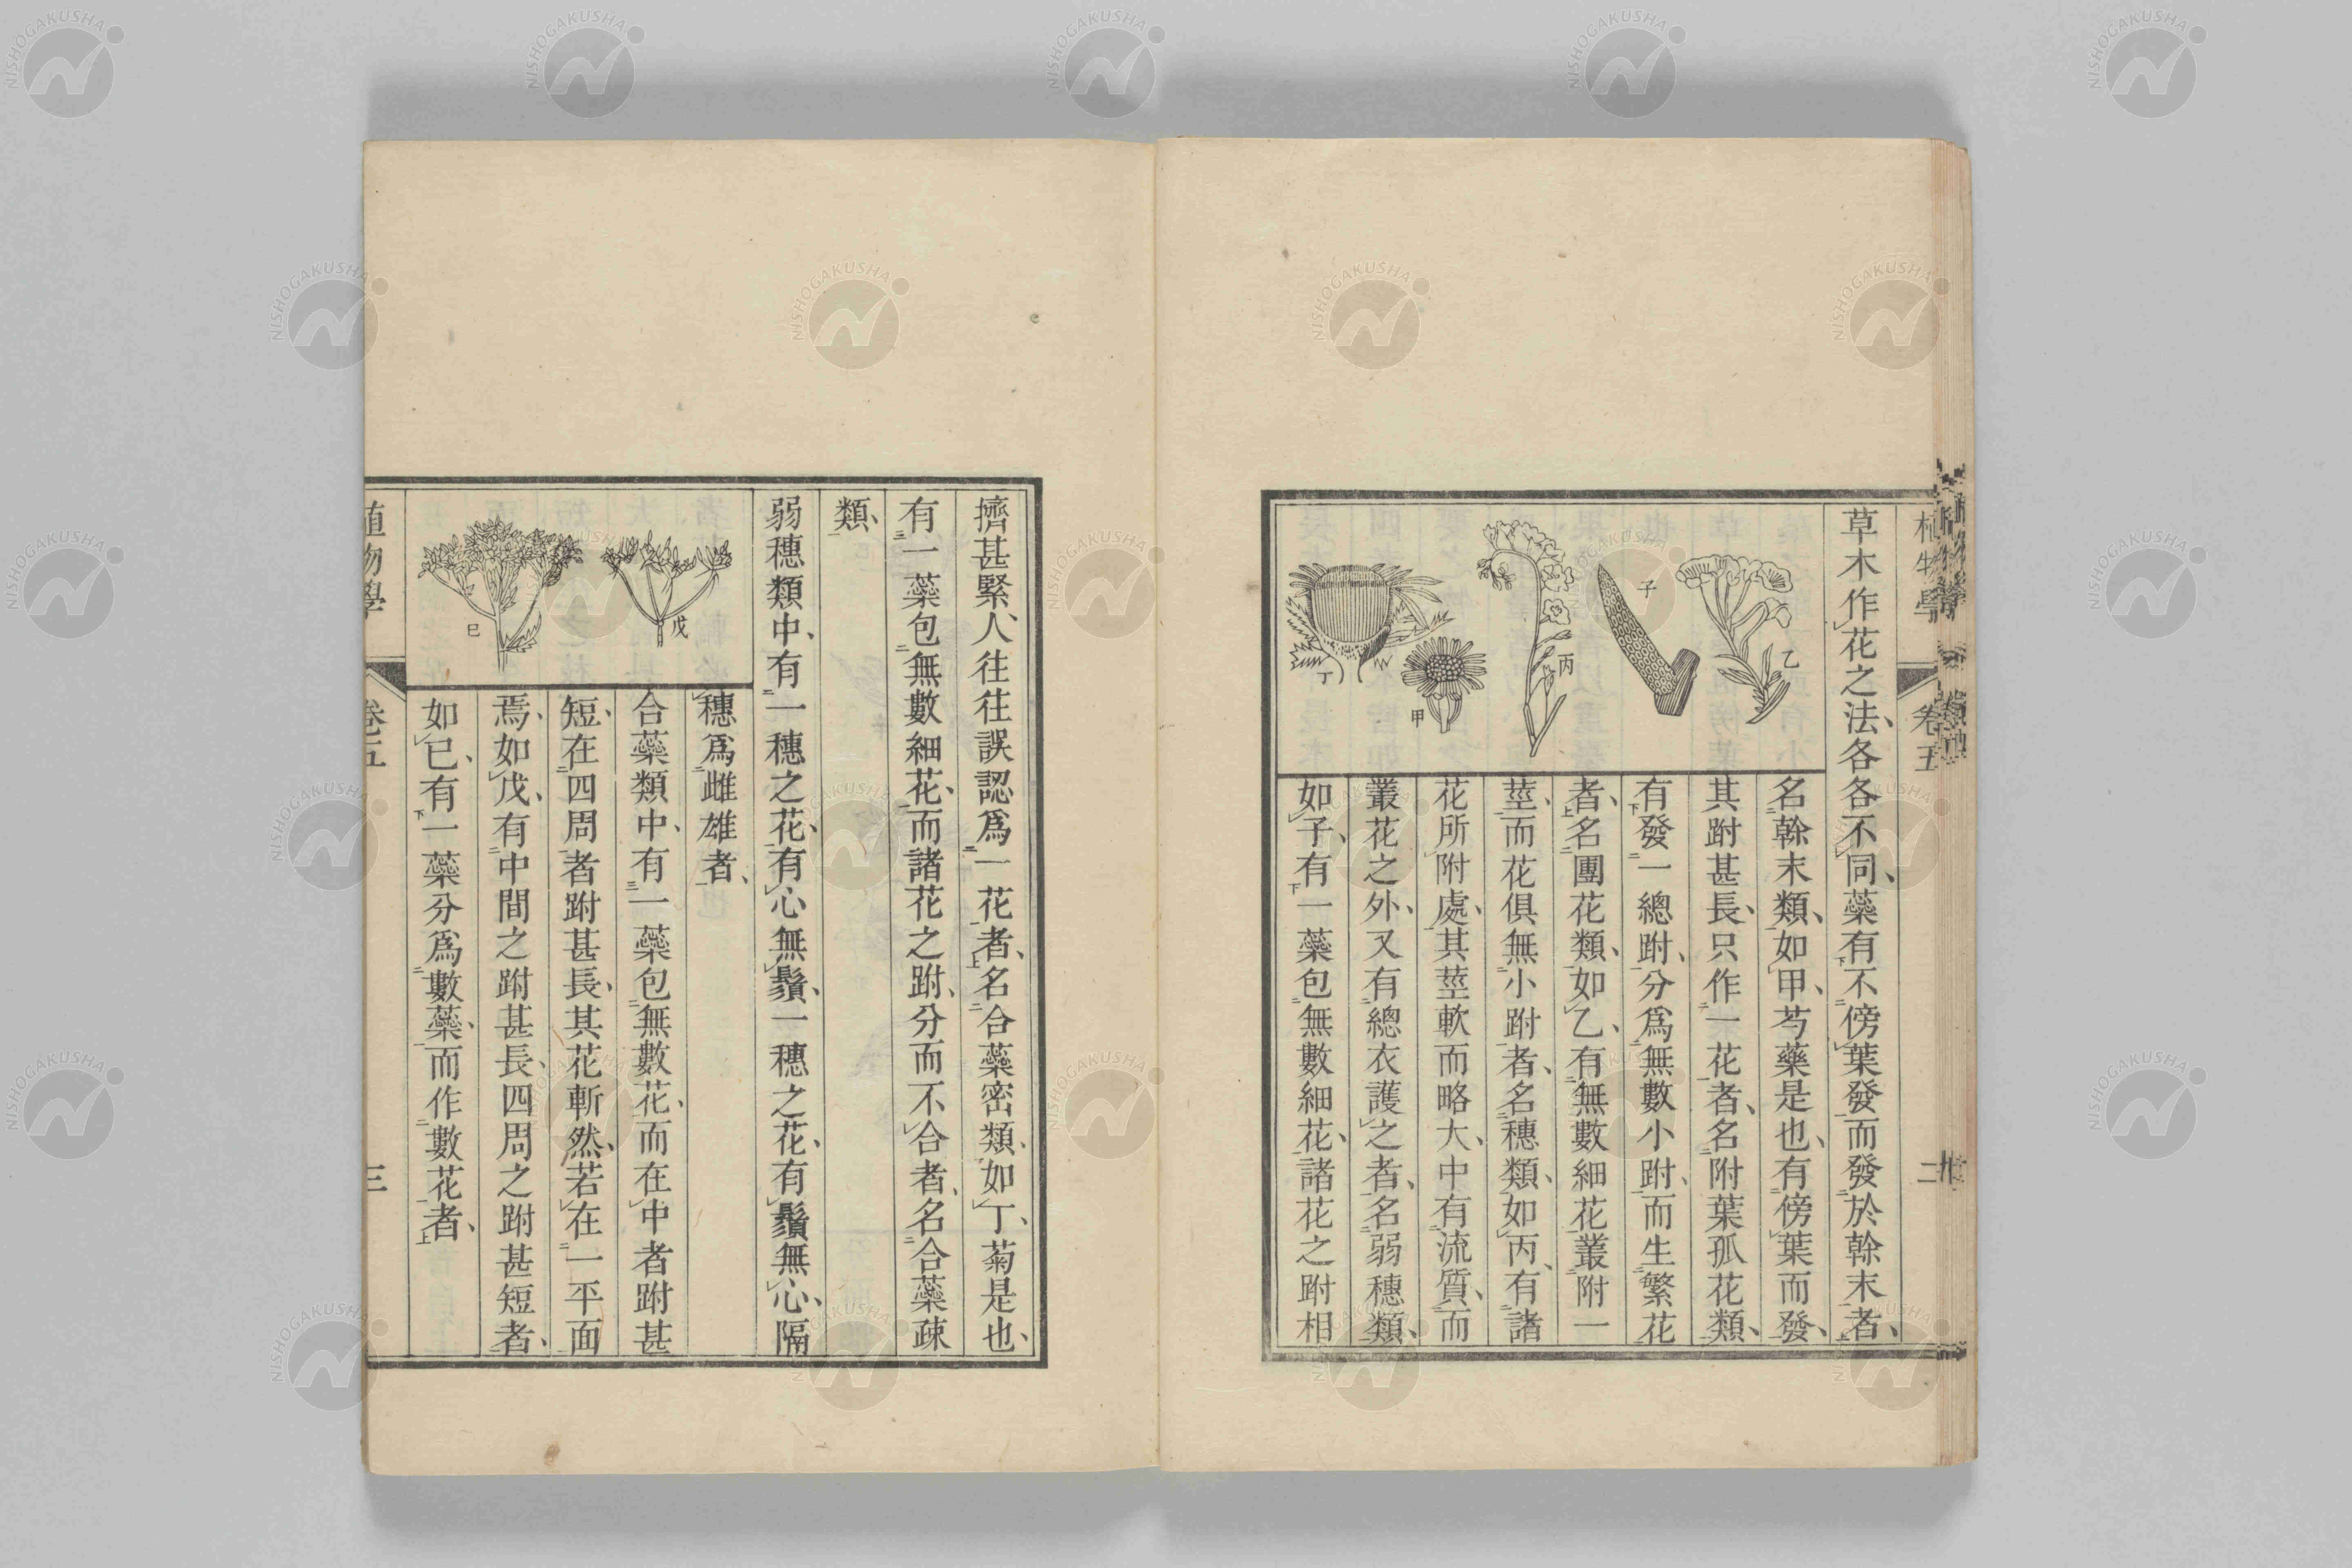 植物學 卷五 二
草木作花之法各各不同蘂有不傍葉發而發於榦末者
名榦末類如甲芍藥是也有傍葉而發
其跗甚長只作一花者名附葉孤花類
有發一總跗分爲無數小跗而生繁花
者名團花類如乙有無數細花叢附一
莖而花俱無小跗者名穗類如丙有諸
花所附處其莖軟而略大中有流質而
叢花之外又有總衣護之者名弱穗類
如子有一蘂包無數細花諸花之跗相
乙
子
丙
甲
丁
擠甚緊人往往誤認爲一花者名合蘂密類如丁菊是也
有一蘂包無數細花而諸花之跗分而不合者名合蘂疎
類
弱穗類中有一穗之花有心無鬚一穗之花有鬚無心隔
穗爲雌雄者
合蘂類中有一蘂包無數花而在中者跗甚
短在四周者跗甚長其花斬然若在一平面
焉如戊有中間之跗甚長四周之跗甚短者
如已有一蘂分爲數蘂而作數花者
戊
巳
植物學 卷五 三
NISHOGAKUSHA